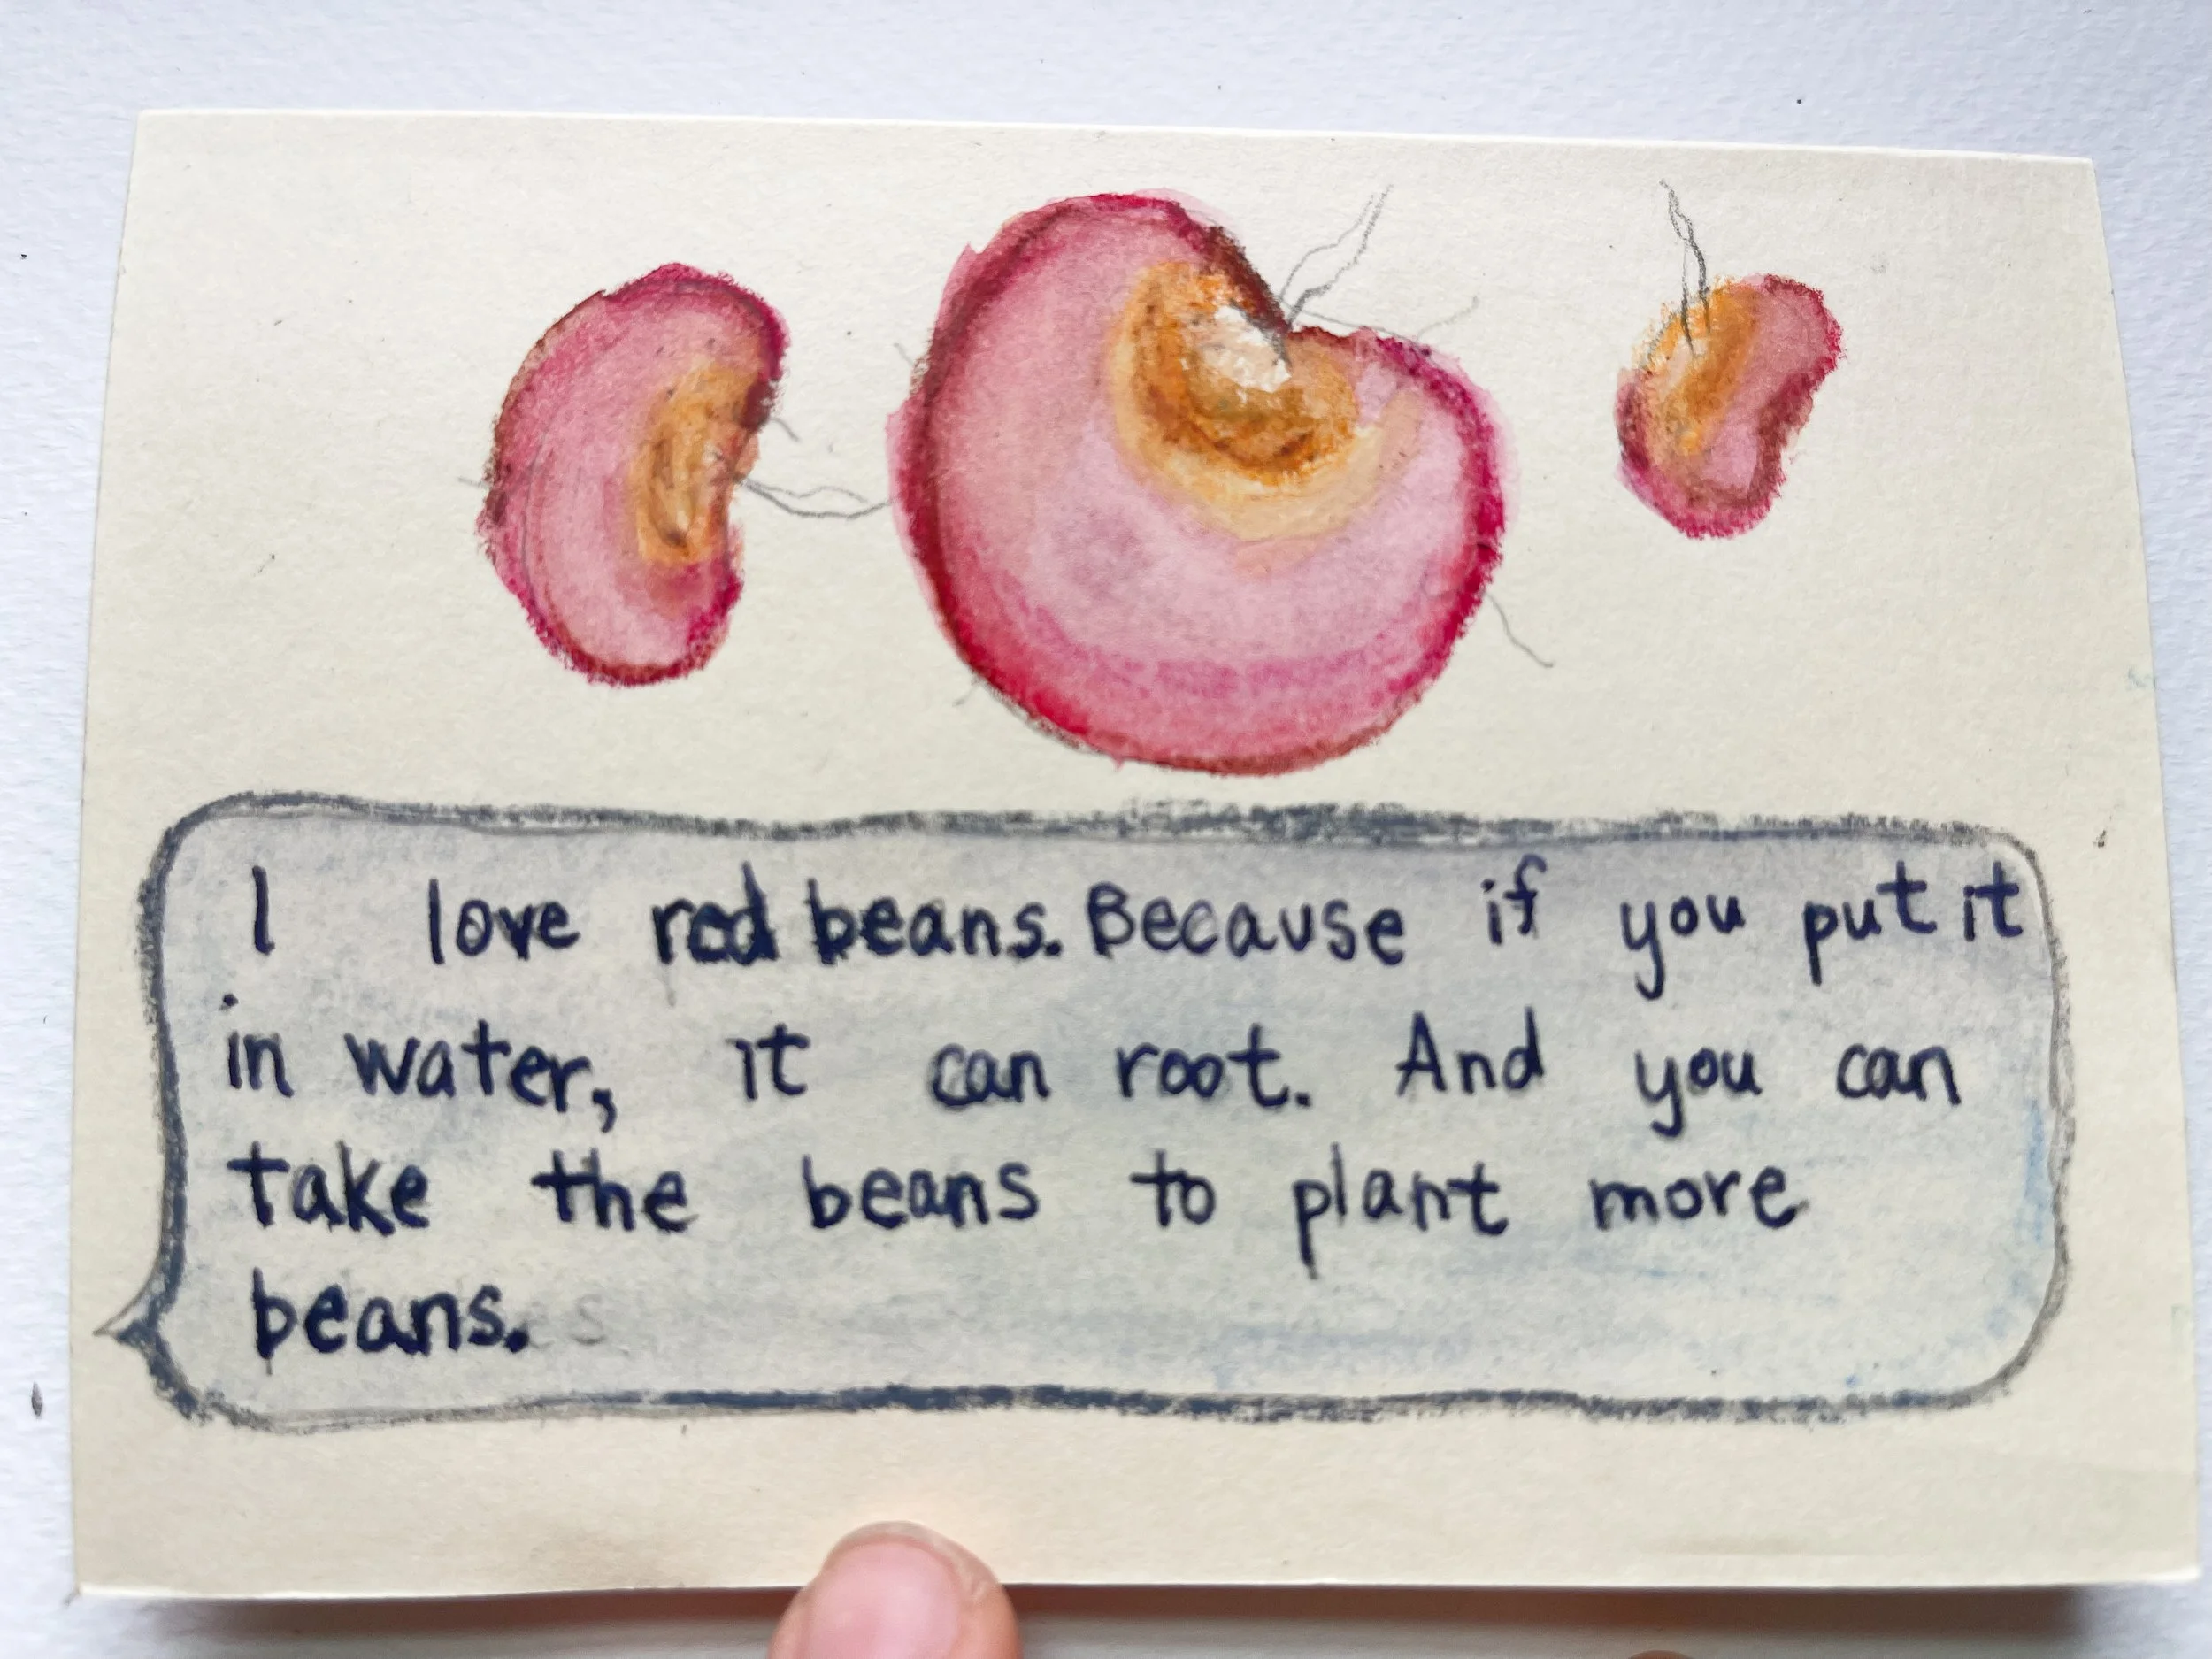 I love red beans. Because if you put it
in water, it can root. And you can
take the beans to plant more
beans.